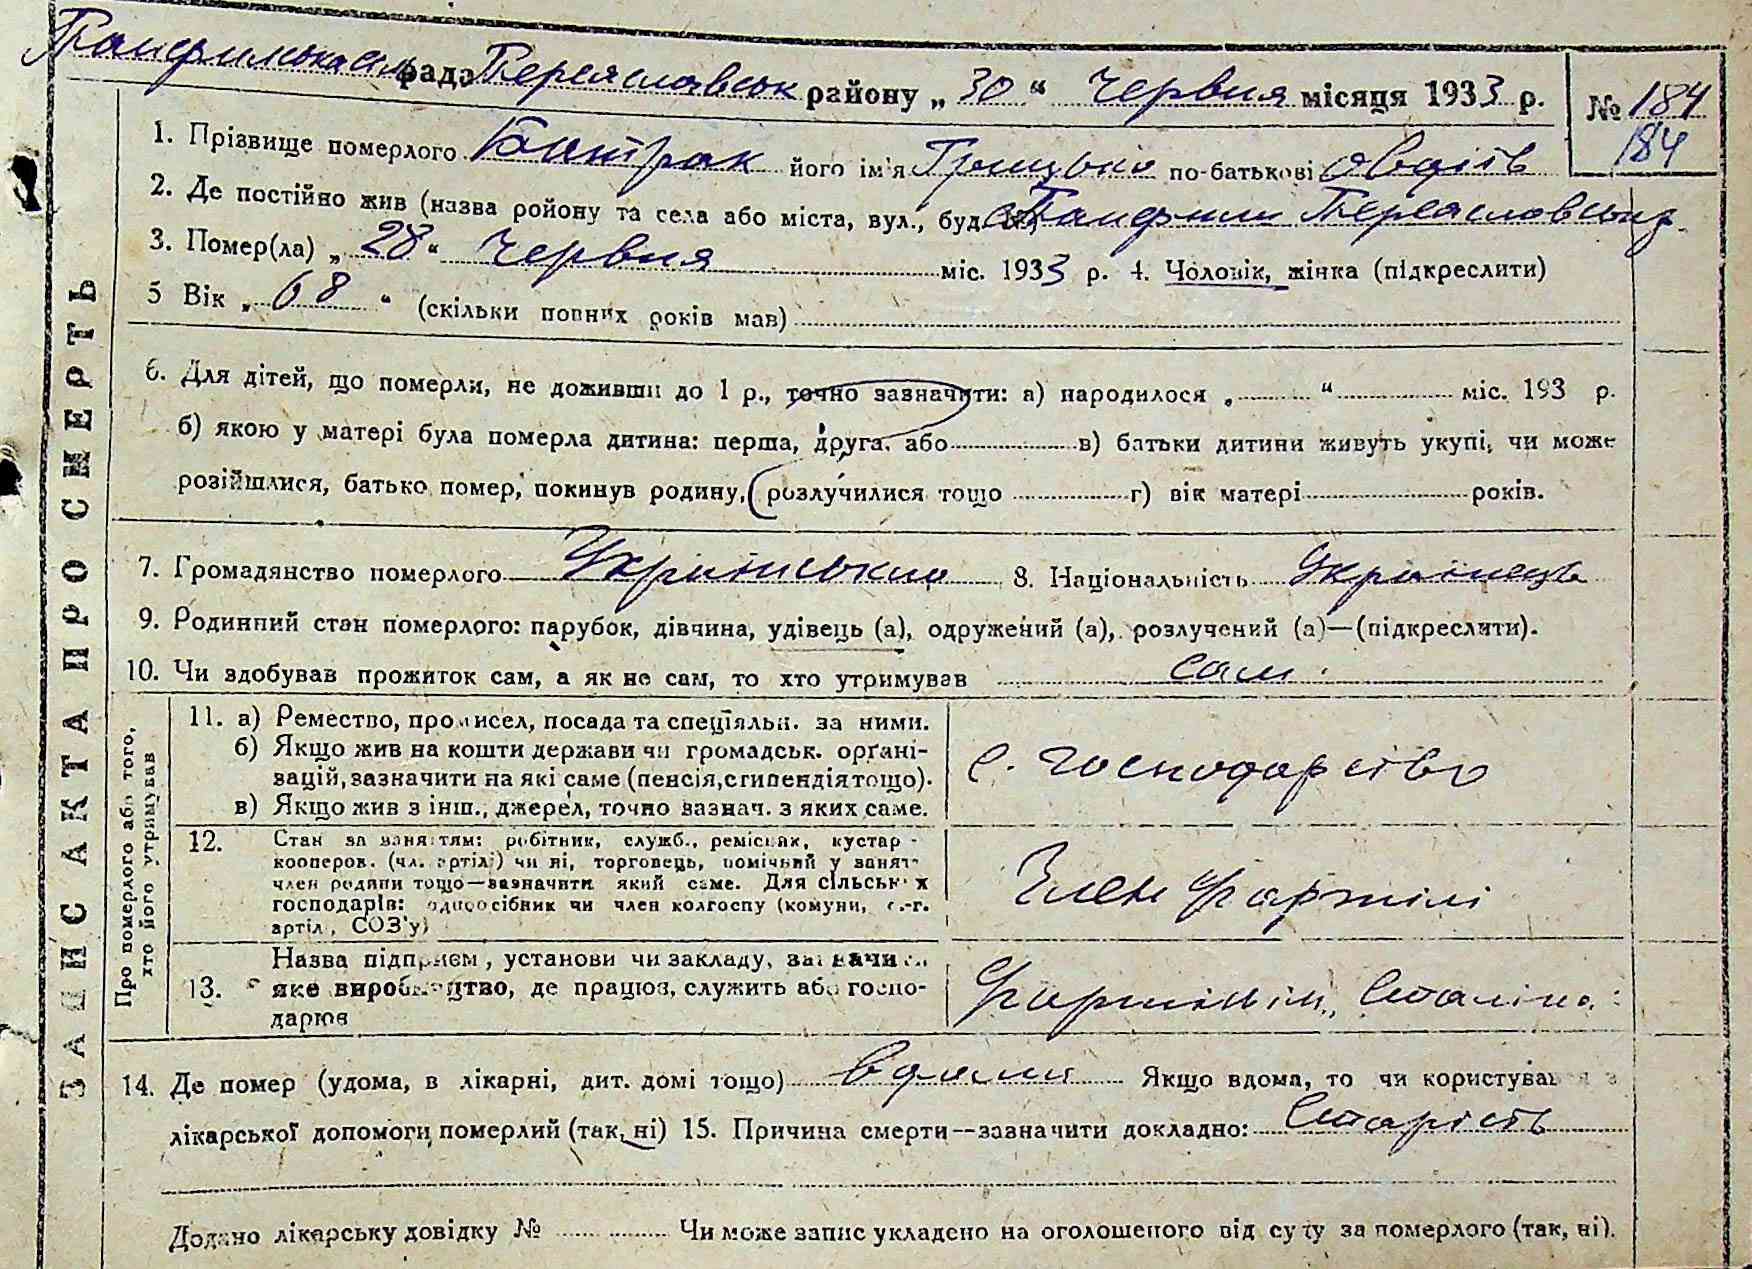 Панфилська сіль рада Переяславськ району „30“ Червня місяця 1933 р. № 184
184
1. Прізвище померлого Батрак його ім'я Грицько по-батькові Овдіїв
2. Де постійно жив (назва ройону та села або міста, вул., буд. №) с Панфили Переяславськ р.
3. Помер(ла) „28“ Червня міс. 1933 р. 4. Чоловік, жінка (підкреслити)
5 Вік „68“ (скільки повних років мав)
6. Для дітей, що померли, не доживши до 1 р., точно зазначити: а) народилося „ “ міс. 193 р.
б) якою у матері була померла дитина: перша, друга, або в) батьки дитини живуть укупі, чи може
розійшлися, батько помер, покинув родину, розлучилися тощо г) вік матері років.
7. Громадянство померлого Україньське 8. Національність Українець
9. Родинний стан померлого: парубок, дівчина, удівець (а), одружений (а), розлучений (а)—(підкреслити).
10. Чи здобував прожиток сам, а як не сам, то хто утримував сам.
ЗАПИС АКТА ПРО СМЕРТЬ
Про померлого або того,
хто його утримував
11. а) Ремество, промисел, посада та спеціяльн. за ними.
б) Якщо жив на кошти держави чи громадськ. орґані-
зацій, зазначити на які саме (пенсія, стипендія тощо).
в) Якщо жив з інш., джерел, точно зазнач. з яких саме.
с. господарство
12. Стан за заняттям: робітник, служб., ремісник, кустар -
кооперов. (чл. артілі) чи ні, торговець, помічний у занят-
член родини тощо—зазначити який саме. Для сільських
господарів: одноосібник чи член колгоспу (комуни, с.-г.
артіл, СОЗ'у)
Член фартілі
13. Назва підприєм, установи чи закладу, зазначити
яке виробництво, де працюв, служить або госпо-
дарюв
14. Де помер (удома, в лікарні, дит. домі тощо) вдома Якщо вдома, то чи користувався з
лікарської допомоги померлий (так, ні) 15. Причина смерти—зазначити докладно: Старість
Додано лікарську довідку № Чи може запис укладено на оголошеного від суду за померлого (так, ні).